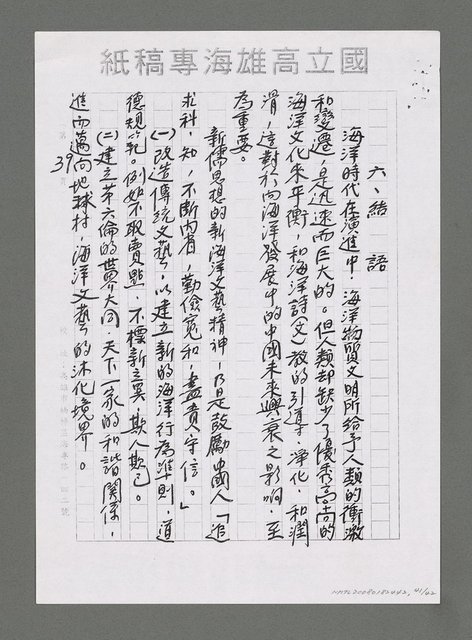 國立高雄海專稿紙
六、結語
海洋時代在演進中，海洋物質文明所給予人類的衝激
和變遷，是迅速而巨大的。但人類却缺少了優秀高尚的
海洋文化來平衡，和海洋詩(文)教的引導，淨化，和潤
滑，這對於向海洋發展中的中國未來興衰之影响，至
為重要。
新儒思想的新海洋文藝精神，乃是鼓勵中國人「追
求科，知，不斷內省，勤儉寬和，盡責守信。」
(一)改造傳統文藝，以建立新的海洋行為準則，道
德規範。例如不取賣點，不標新立異，欺人欺己。
(二)建立第六倫的世界大同，天下一家的和諧關係，
進而邁向地球村，海洋文藝的沐化境界。
39
NMTL20080182442, 41/42